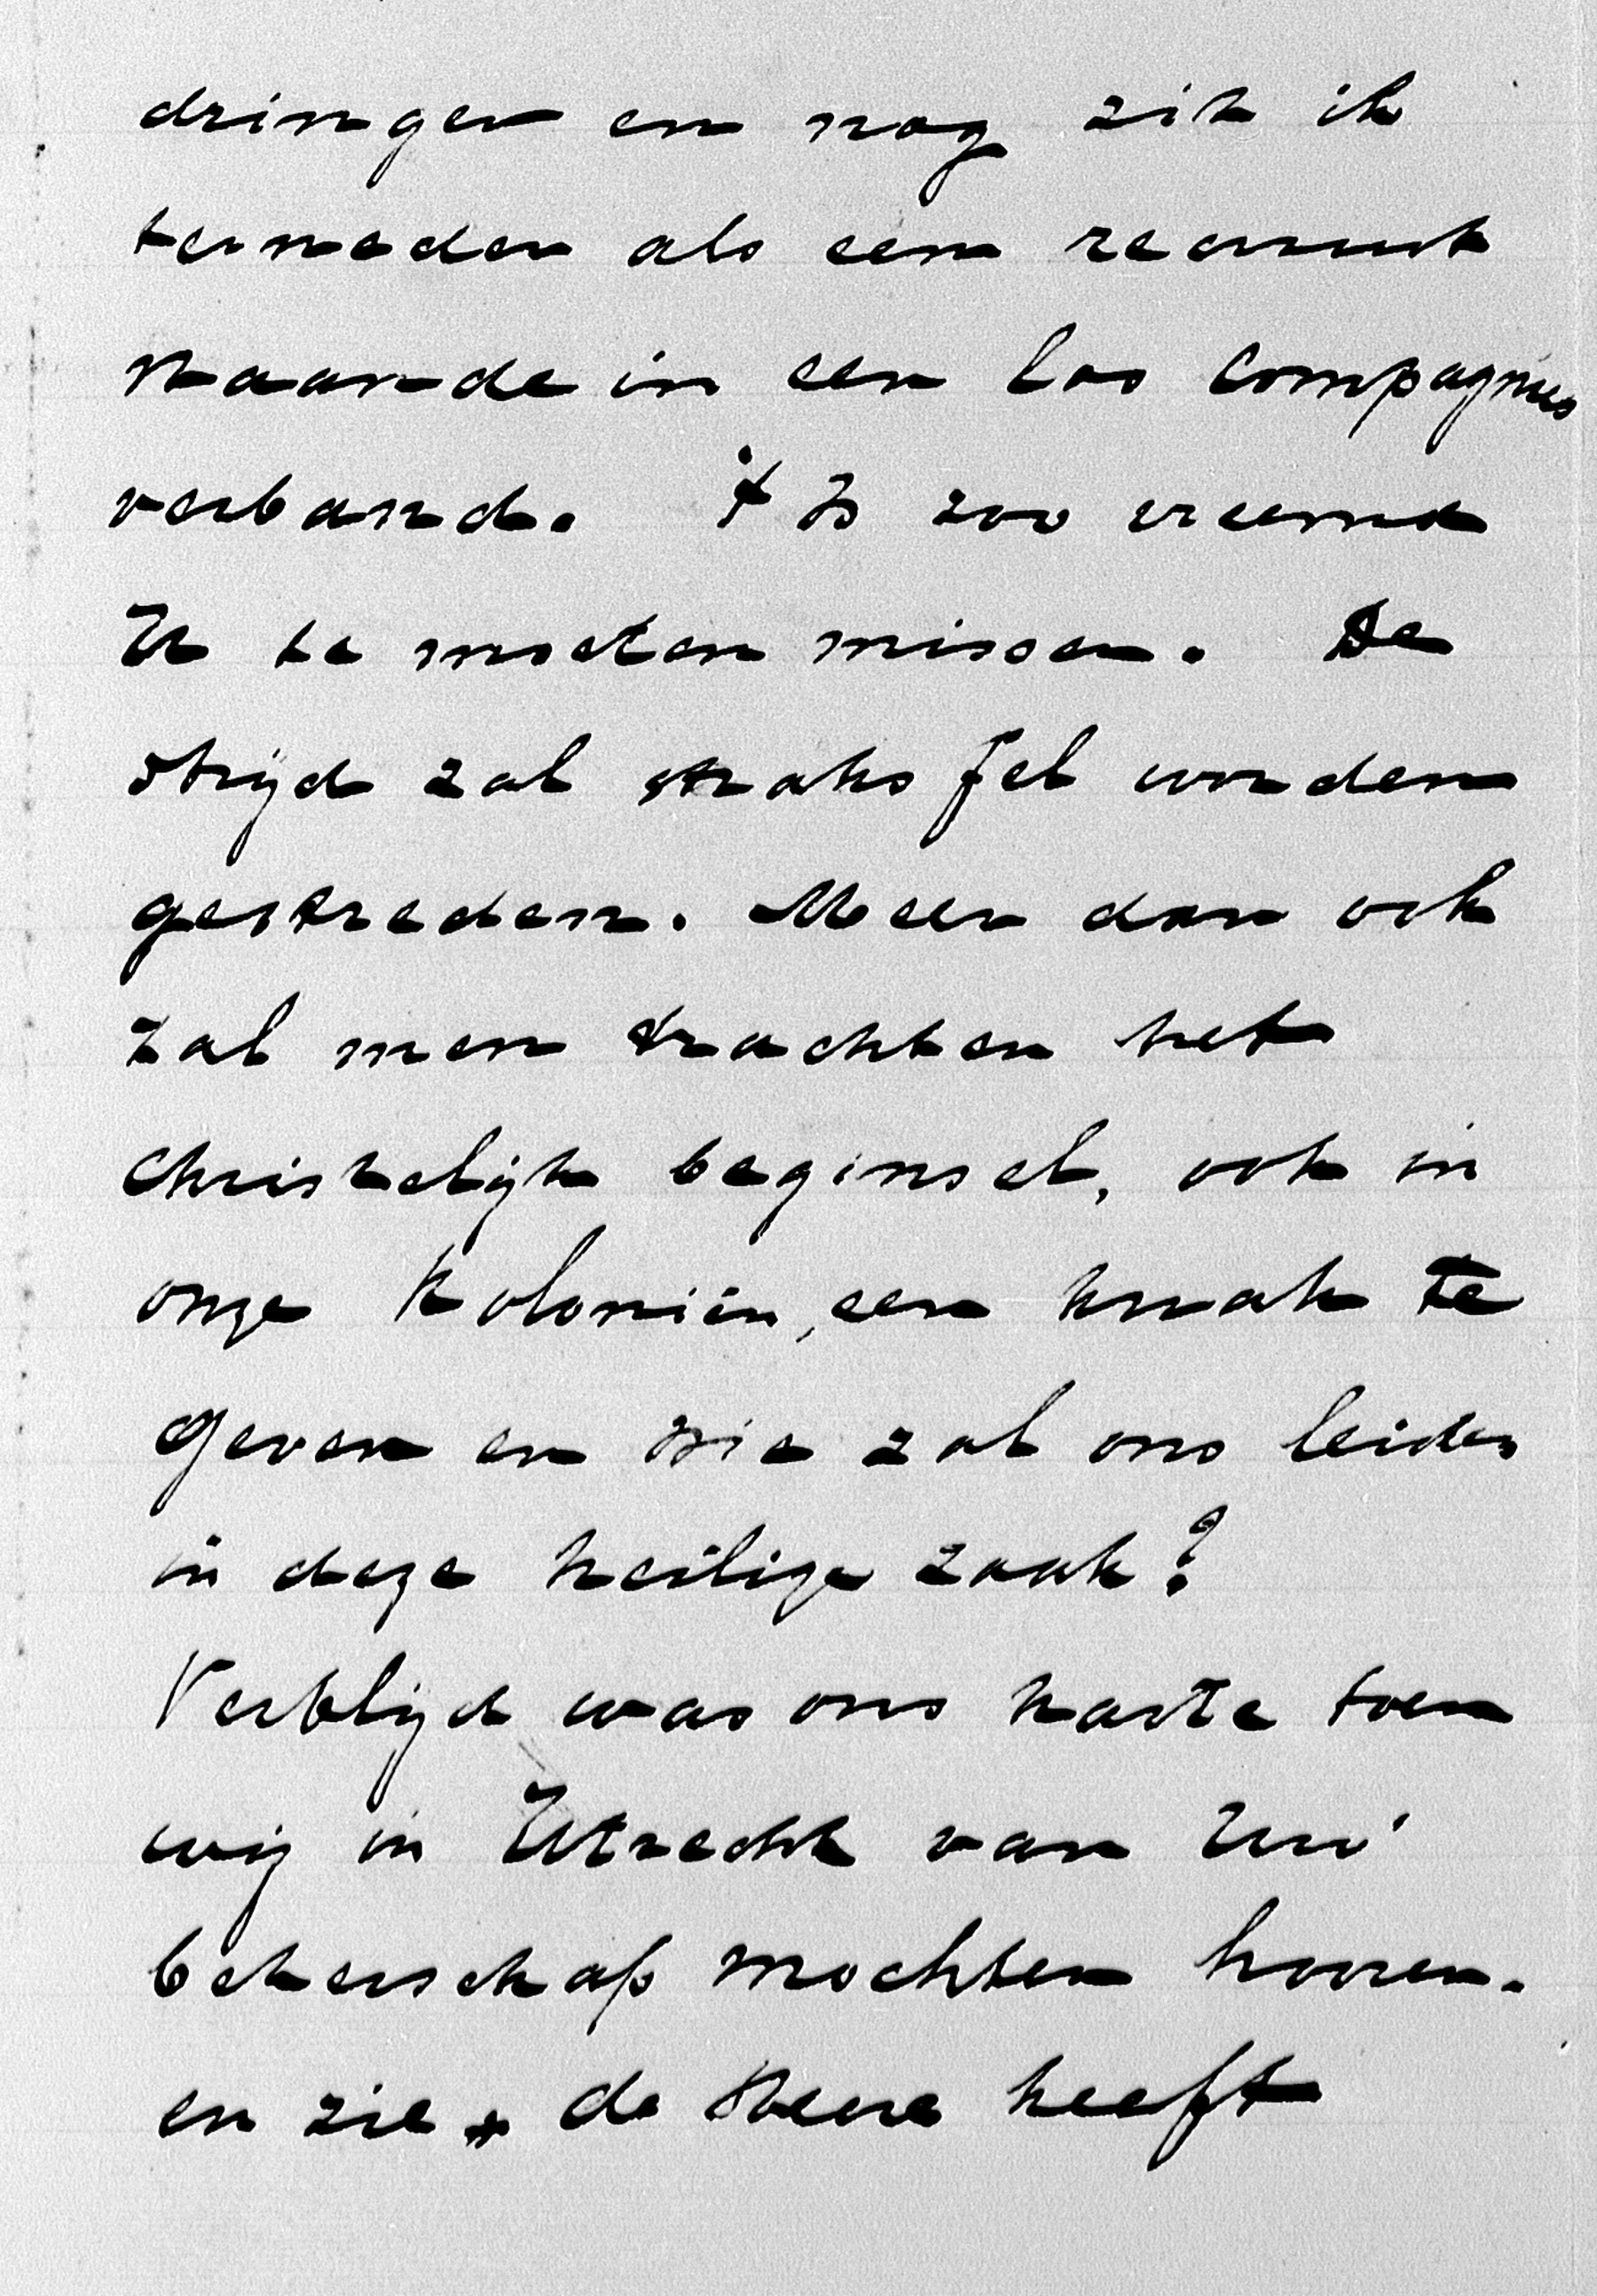 dringen en nog zit ik
terneder als een recruut
staande in een los compagnies
verband. 't Is zoo vreemd
U te moeten missen. De
strijd zal straks fel worden
gestreden. Meer dan ook
zal men trachten het
Christelijk beginsel, ook in
onze Koloniën, een knak te
geven en wie zal ons leiden
in deze heilige zaak?
Verblijd was ons harte toen
wij in Utrecht van Uw
beterschap mochten hooren.
en zie, de Heere heeft